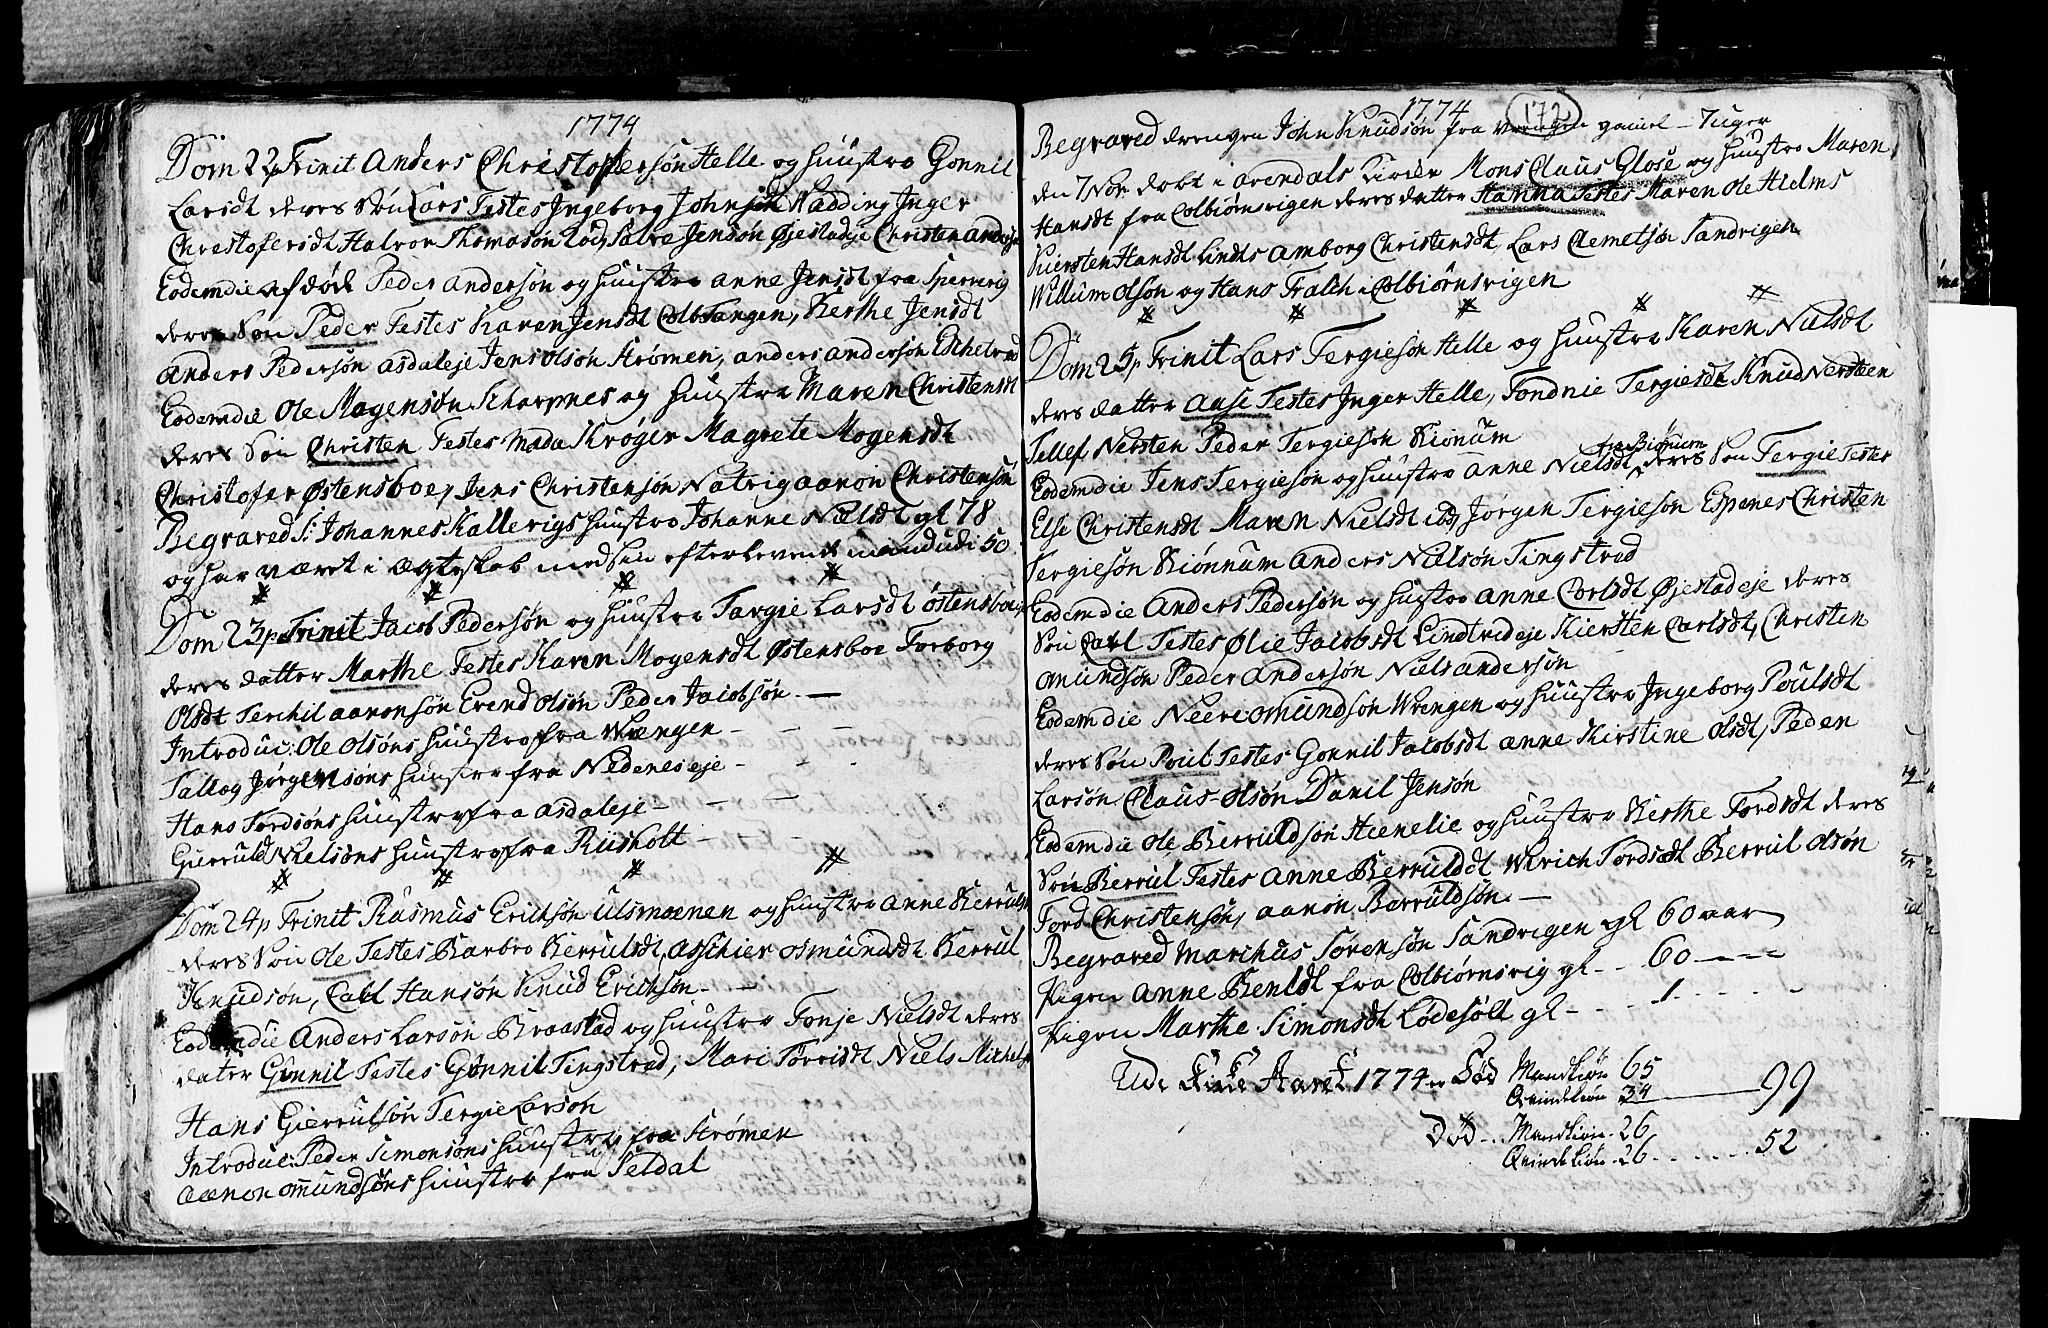 1774
Dom 22 p Trinit Anders Christoffersøn Helle og huustro Gonnil
Larsdt deres Søn Lars Testes Ingeborg Johnsdt Nadding Inger
Christofersdt Halvor Thomasøn Salve Jensøn Øjestadeje Christen
Eodem die Peder Andersøn og huustro Anne Jensdt fra Spervig
deres Søn Peder Testes Karen Jensdt Colbtangen, Kerthe Jensdt
Anders Pedersøn Asdaleje Jens Olsøn Strømen, Anders Andersøn
Eodem die Ole Mogensøn Scharpnes og huustro Maren Christensdt
deres Søn Christen Testes Mada Krøger Magrete Mogensdt
Christofer Østensboe, Jens Christensøn Natvig Aaron Christensøn
Begraved S: Johannes Kallevigs huustro Johanne Nielsdt gl 78
og har været i Ægteskab med sin efterlevende mand udi 50
Dom 23 p Trinit Jacob Pedersøn og huustro Targie Larsdt Østensboe
deres datter Marthe Testes Karen Mogensdt Østensboe Torborg
Olsdt Terchil Aaronsøn Evend Olsøn Peder Jacobsøn. —
Introduc: Ole Olsøns huustro fra Wrengen -
Tallog Jørgensøns huustro fra Nedeneseje -
Hans Tordsøns huustro fra Asdaleje -
Gierruld Nielsøns huustro fra Riisholt -
Dom 24 p Trinit Rasmus Ericksøn Ulsmoenen og huustro Anne Kerrulsdt
deres Søn Ole Testes Barbro Kerrulsdt, Aschier Osmundsdt Berrul
Knudsøn, Carl Hansøn Knud Ericksøn -
Eodem die Anders Larsøn Braastad og huustro Tonje Nielsdt deres
dater Gunnil Testes Gunnil Tingstved, Mari Torrisdt Niels Michels
Hans Gierrulsøn Tergie Larsøn
Introduc: Peder Simonsøns huustro fra Strømen
Aanon Omundsøns huustro fra Seldal
1774
172
Begraved drengen John Knudsøn fra Vrengen gamel - 7 uger
den 7 Nov. døbt i Arendals kircke Mons Claus Glose og huustro Maren
Hansdt fra Colbiørnsvigen deres datter Hanna Testes Maren de Hielms
Kiersten Hansdt Linds Amborg Christensdt, Lars Clemetsøn Sandvigen
Willum Olsøn og Hans Falch i Colbiørnsvigen
Dom 25 p Trinit Lars Tergiesøn Helle og huustro Karen Nielsdt
deres datter Aase Testes Inger Helle, Tondnie Tergiesdt Knud Nersteen
Tellef Nersten Peder Tergiesøn Kiønum
Eodem die Jens Tergiesøn og huustro Anne Nielsdt fra Biørnum deres Søn Tergie Testes
Else Christensdt Maren Nielsdt ibd, Jørgen Tergiesøn Espenes Christen
Tergiesøn Kiønnum Anders Nielsøn Tingstved
Eodem die Anders Pedersøn og hustro Anne Carlsdt Øjestadeje deres
Søn Carl Testes Ølie Jacobsdt Lindtvideje Kiersten Carlsdt, Christen
Omundsøn Peder Andersøn Niels Andersøn
Eodem die Neeri Omundsøn Wrengen og huustro Ingeborg Poulsdt
deres Søn Poul Testes Gonnil Jacobsdt Anne Kirstine Olsdt, Peder
Larsøn, Claus Olsøn Daniel Jensøn
Eodem die Ole Berruldsøn og huustro Kerthe Tordsdt deres
Søn Berrul Testes Anne Berruldsdt Tordsdt Berrul Olsøn
Tord Christensøn, Aaron Berruldsøn. —
Begraved Marchus Sørensøn Sandvigen gl 60 aar
Pigen Anne Bentsdt fra Colbiørnsvig gl - - 60 - - -
Pigen Marthe Simonsdt Lodesøll gl - - - 1 - - -
Udi dette Aaret 1774 er Fød Mandkiøn 65
Qvindekiøn 34 — 99
Død - Mandkiøn. 26
Qvindekiøn. 26 - - - 52